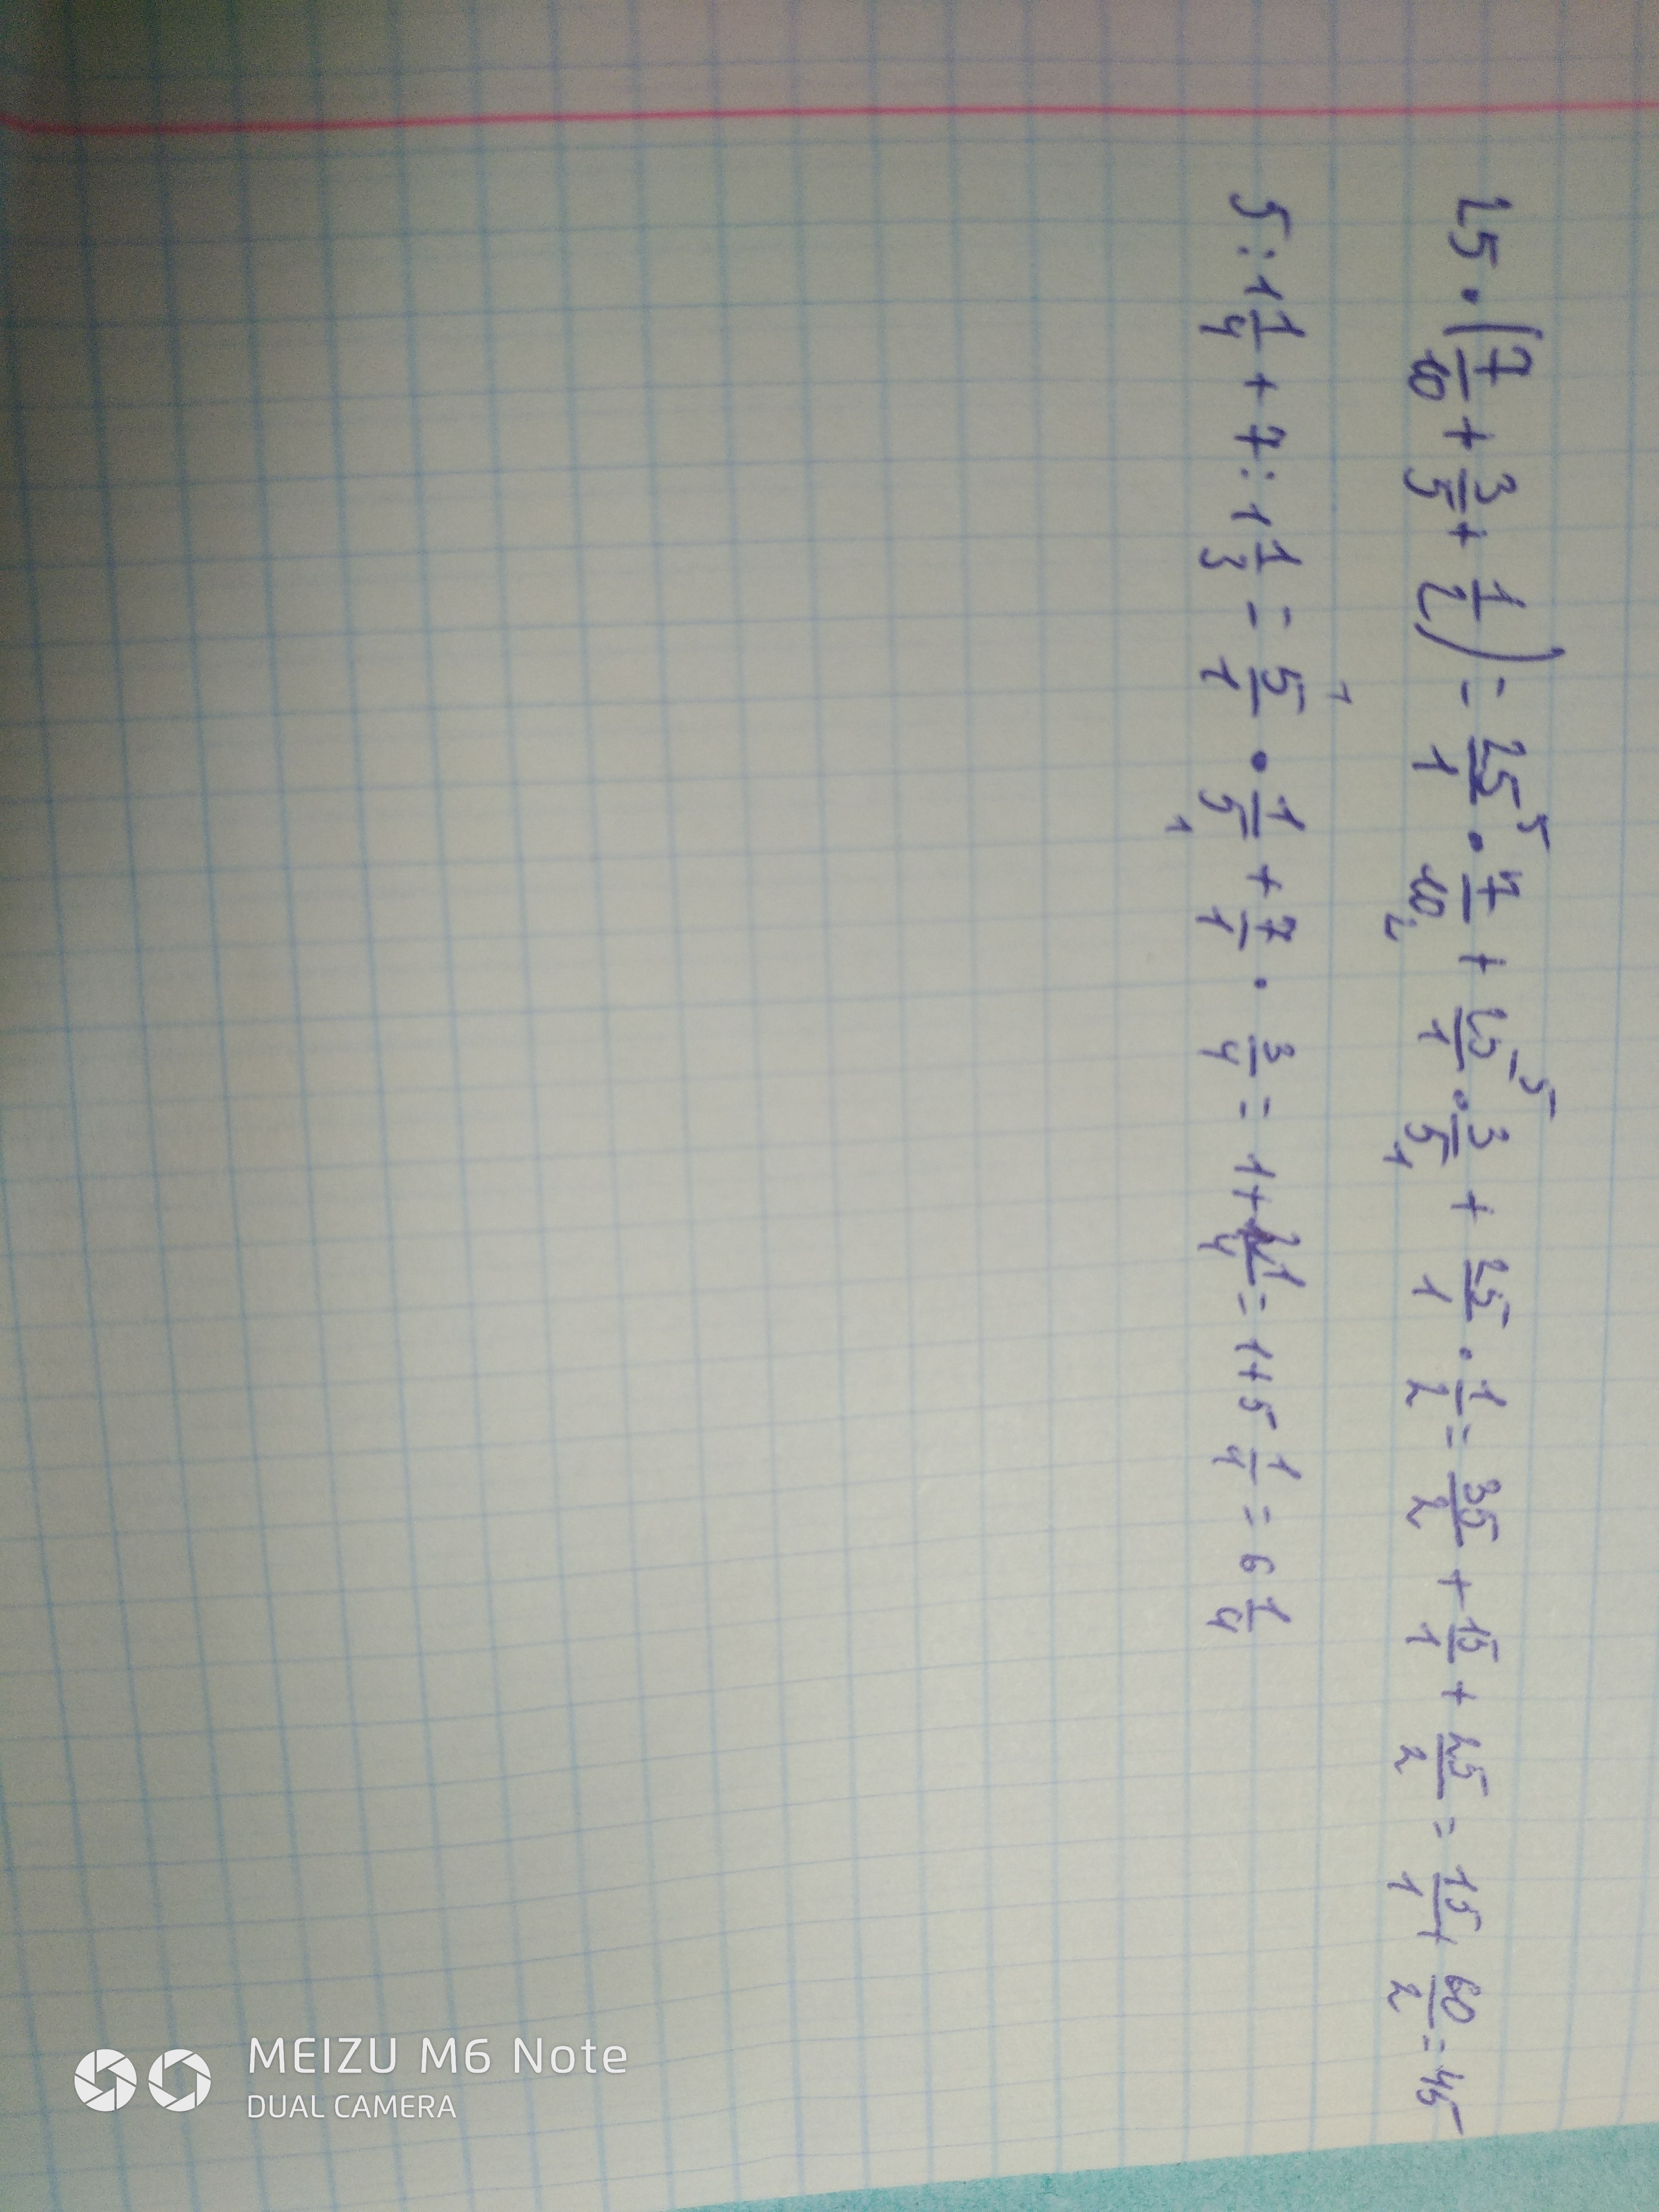 25 · (7/10 + 3/5 + 1/2) = 25/1 ⁵ · 7/10 ₂ + 25/1 ⁵ · 3/5 ₁ + 25/1 · 1/2 = 35/2 + 15/1 + 25/2 = 15/1 + 60/2 = 45
5 : 1 1/4 + 7 : 1 1/3 = 5/1 ¹ · 1/5 ₁ + 7/1 · 3/4 = 1 + 21/4 = 1 + 5 1/4 = 6 1/4
MEIZU M6 Note
DUAL CAMERA